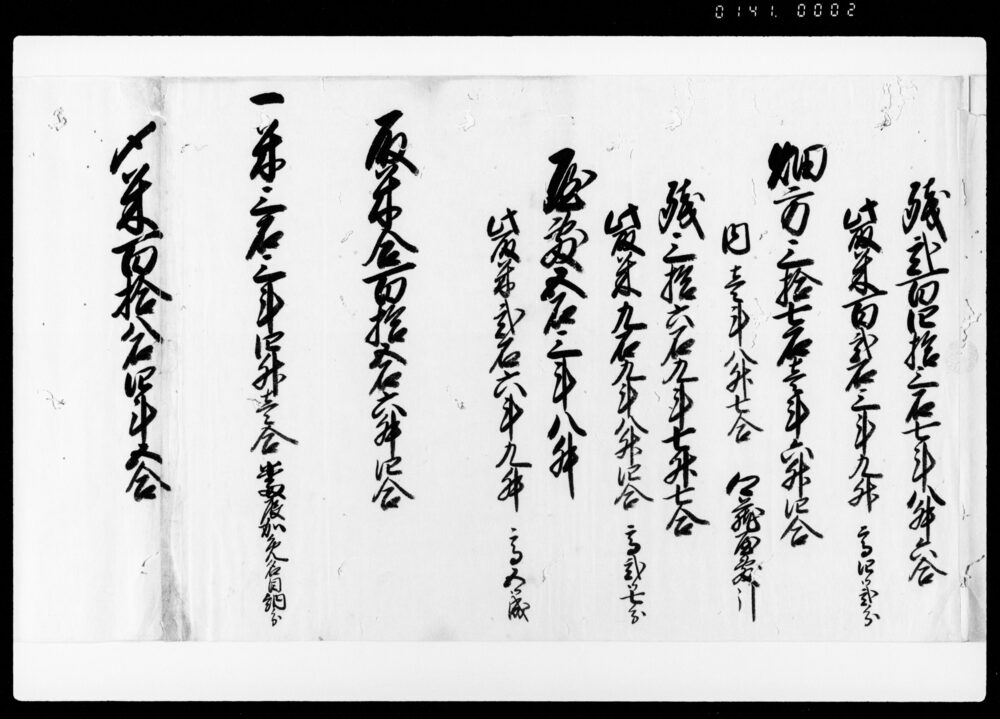 0141. 0002
残弐百四拾三石七斗八升六合
此取米百弐石三斗九升 高四ツ弐分
畑方三拾七石壱斗六升四合
内 壱斗八升七合
残三拾六石九斗七升七合
此取米九石九斗八升四合 高弐ツ七分
屋敷五石三斗八升
此取米弐石六斗九升 高五ツ成
取米合百拾五石六升四合
一米三石三斗四升壱合
〆米百拾八石四斗五合